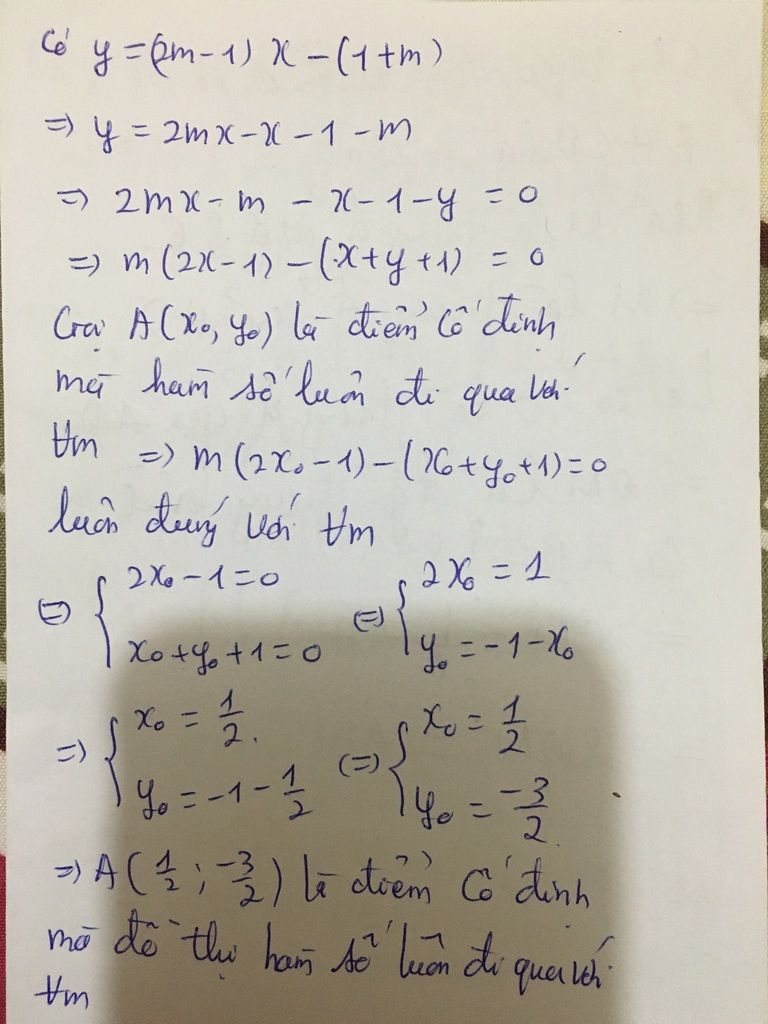 Có y = (2m-1) x - (1+m)
=> y = 2mx - x - 1 - m
=> 2mx - m - x - 1 - y = 0
=> m(2x-1) - (x+y+1) = 0
Gọi A(x₀, y₀) là điểm cố định
mà hàm số luôn đi qua với
∀m => m(2x₀-1) - (x₀+y₀+1) = 0
luôn đúng với ∀m
<=> { 2x₀ - 1 = 0 ; x₀ + y₀ + 1 = 0 <=> { 2x₀ = 1 ; y₀ = -1 - x₀
=> { x₀ = 1/2 ; y₀ = -1 - 1/2 <=> { x₀ = 1/2 ; y₀ = -3/2
=> A(1/2 ; -3/2) là điểm cố định
mà đồ thị hàm số luôn đi qua với
∀m